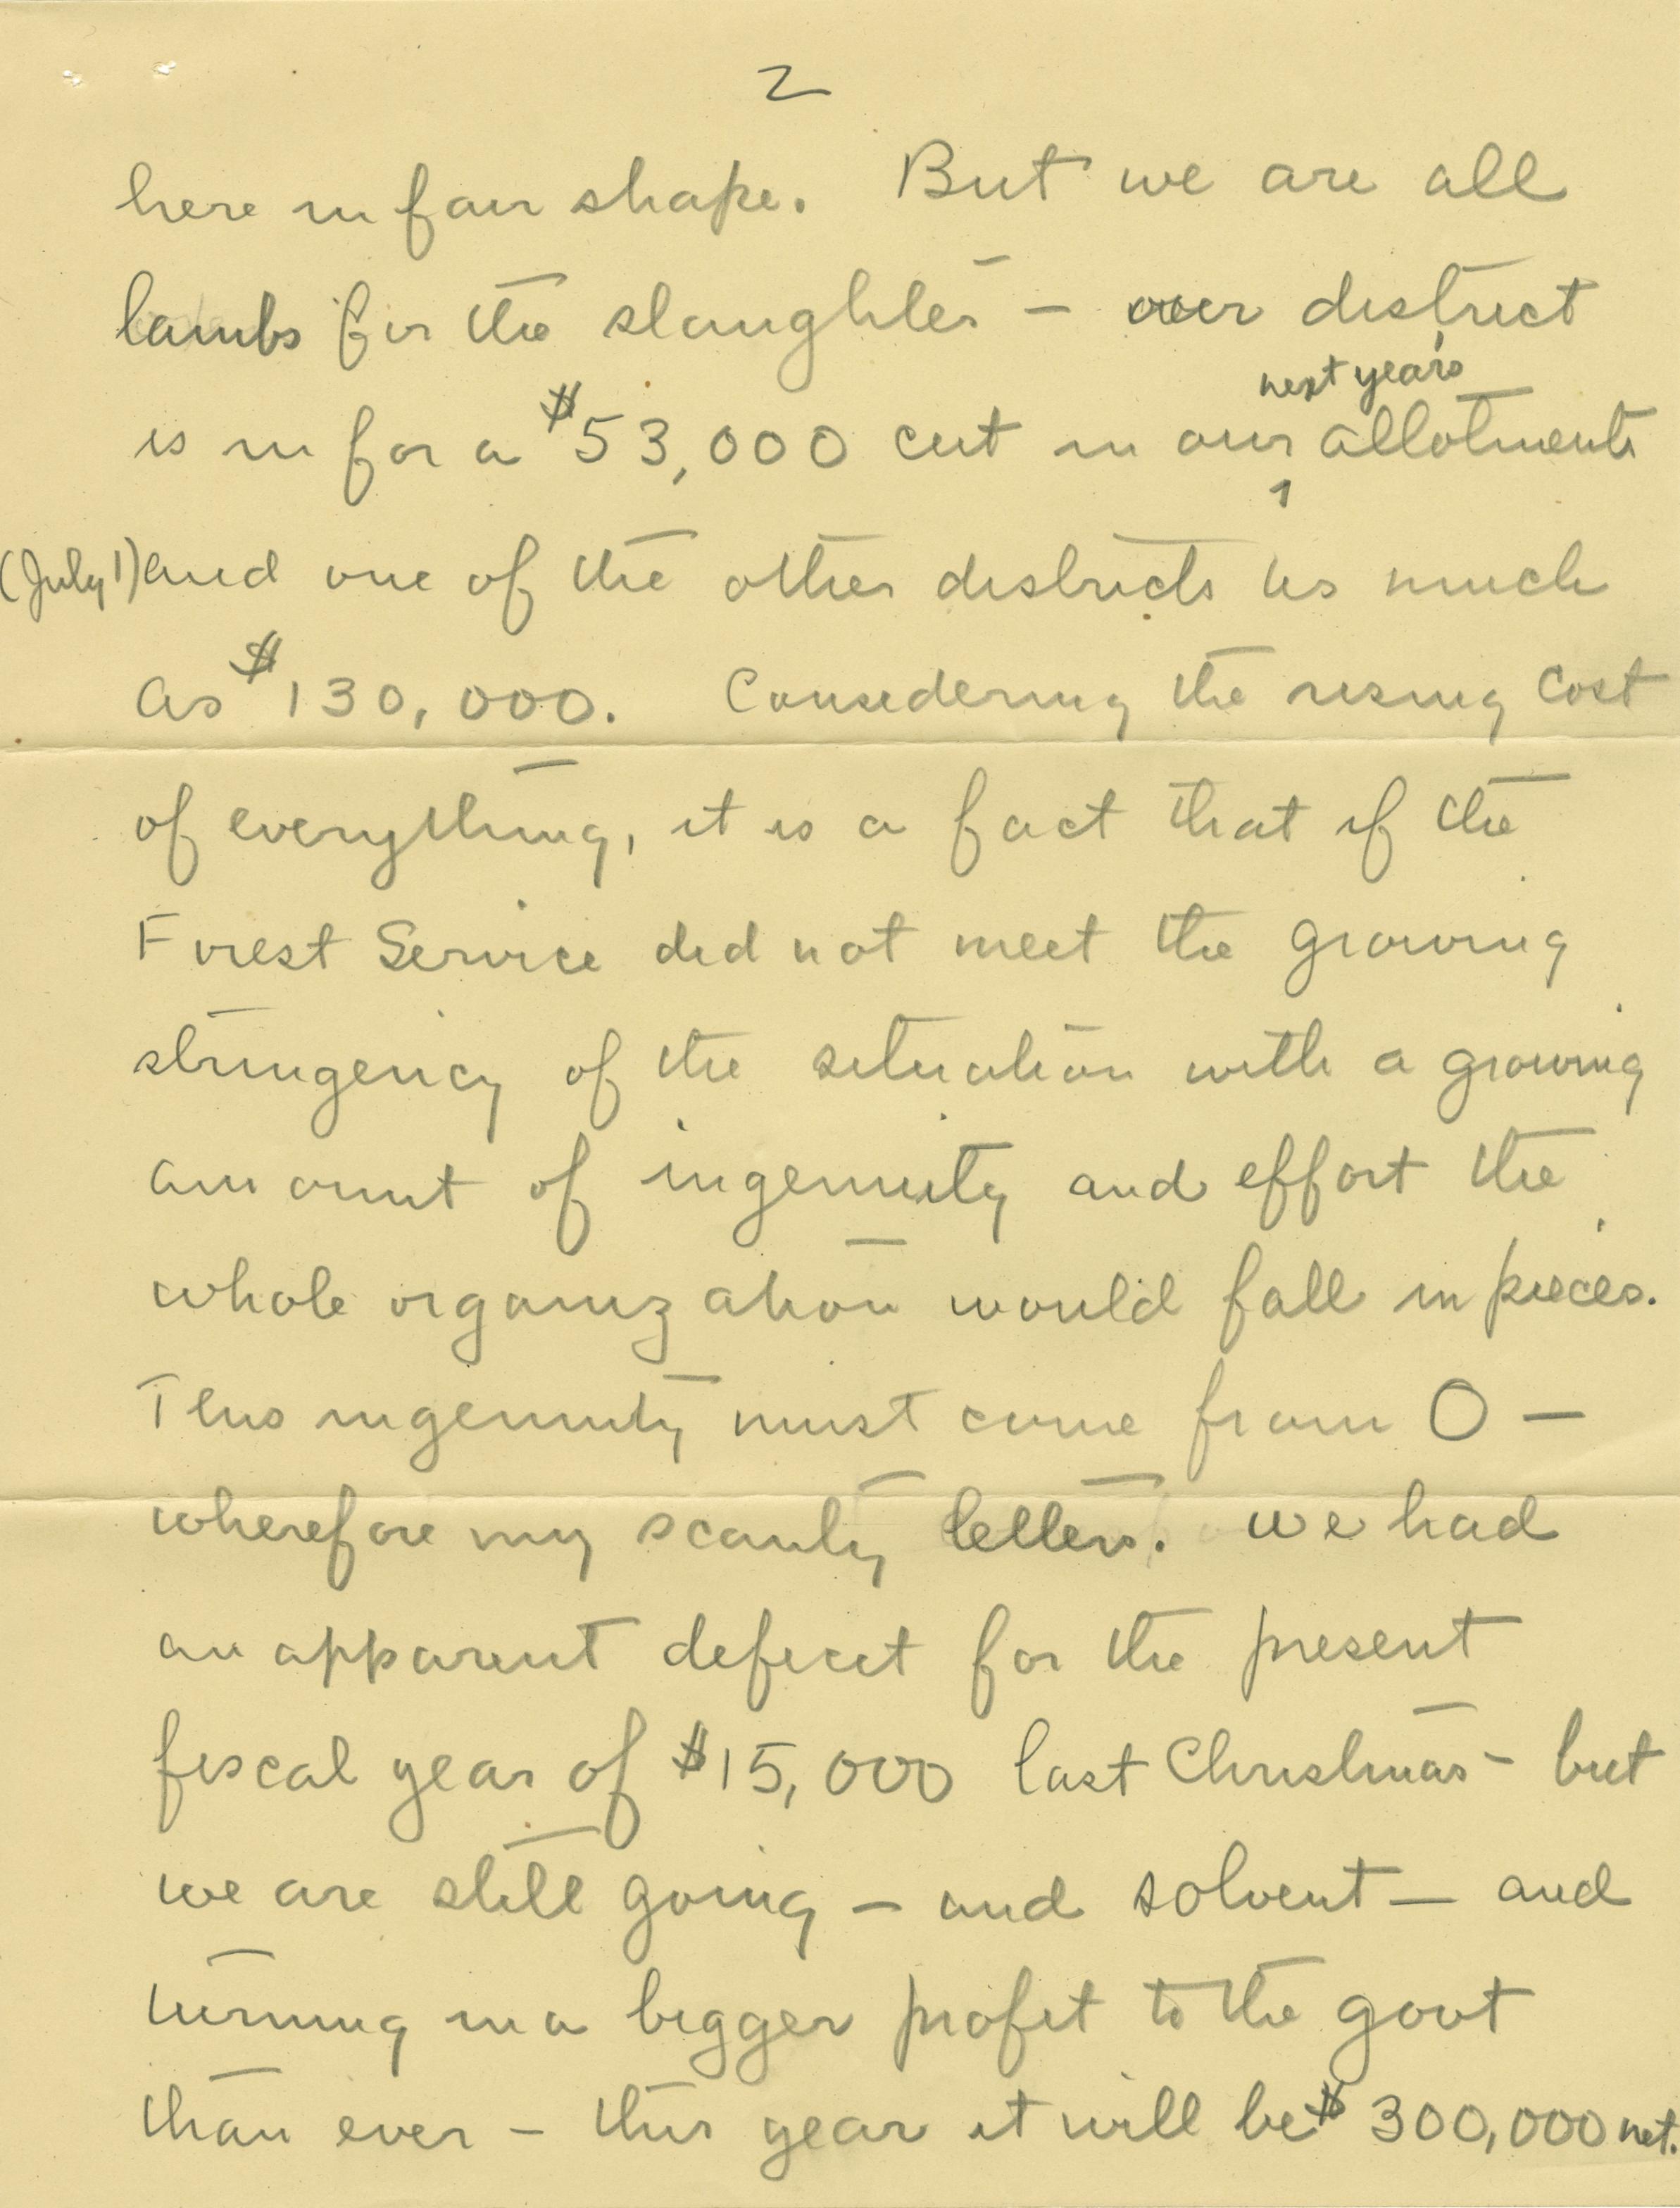 2
here in fair shape. But we are all
lambs for the slaughter - our district
next year's
is in for a $53,000 cut in our allotments
(July 1) and one of the other districts as much
as $130,000. Considering the rising cost
of everything, it is a fact that if the
Forest Service did not meet the growing
stringency of the situation with a growing
amount of ingenuity and effort the
whole organization would fall in pieces.
This ingenuity must come from O —
wherefore my scanty letters. We had
an apparent deficit for the present
fiscal year of $15,000 last Christmas - but
we are still going — and solvent — and
turning in a bigger profit to the govt
than ever - this year it will be $300,000 net.